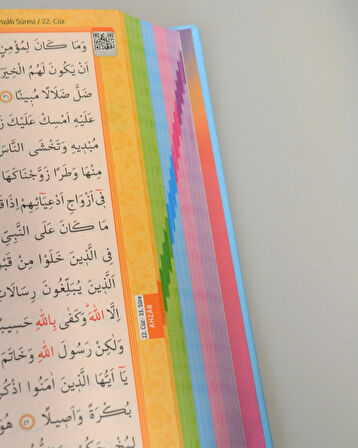 hzâb Sûresi / 22. Cüz
وَمَا كَانَ لِمُؤْمِنٍ
اَنْ يَكُونَ لَهُمُ الْخِيَرَ
ضَلَّ ضَلَالًا مُبٖينًا ٣٦
عَلَيْهِ اَمْسِكْ عَلَيْكَ
مُبْدٖيهِ وَتَخْشَى النَّاسَ
مِنْهَا وَطَرًا زَوَّجْنَاكَهَا
فٖٓى اَزْوَاجِ اَدْعِيَٓائِهِمْ اِذَا
مَا كَانَ عَلَى النَّبِيِّ
فِى الَّذٖينَ خَلَوْا مِنْ
اَلَّذٖينَ يُبَلِّغُونَ رِسَالَاتِ
اِلَّا اللّٰهَ وَكَفٰى بِاللّٰهِ حَسٖيبًا
وَلٰكِنْ رَسُولَ اللّٰهِ وَخَاتَمَ
يَٓا اَيُّهَا الَّذٖينَ اٰمَنُوا اذْكُرُ
بُكْرَةً وَاَصٖيلًا ٤٢ هُوَ
22. Cüz - 33. Sûre
AHZÂB